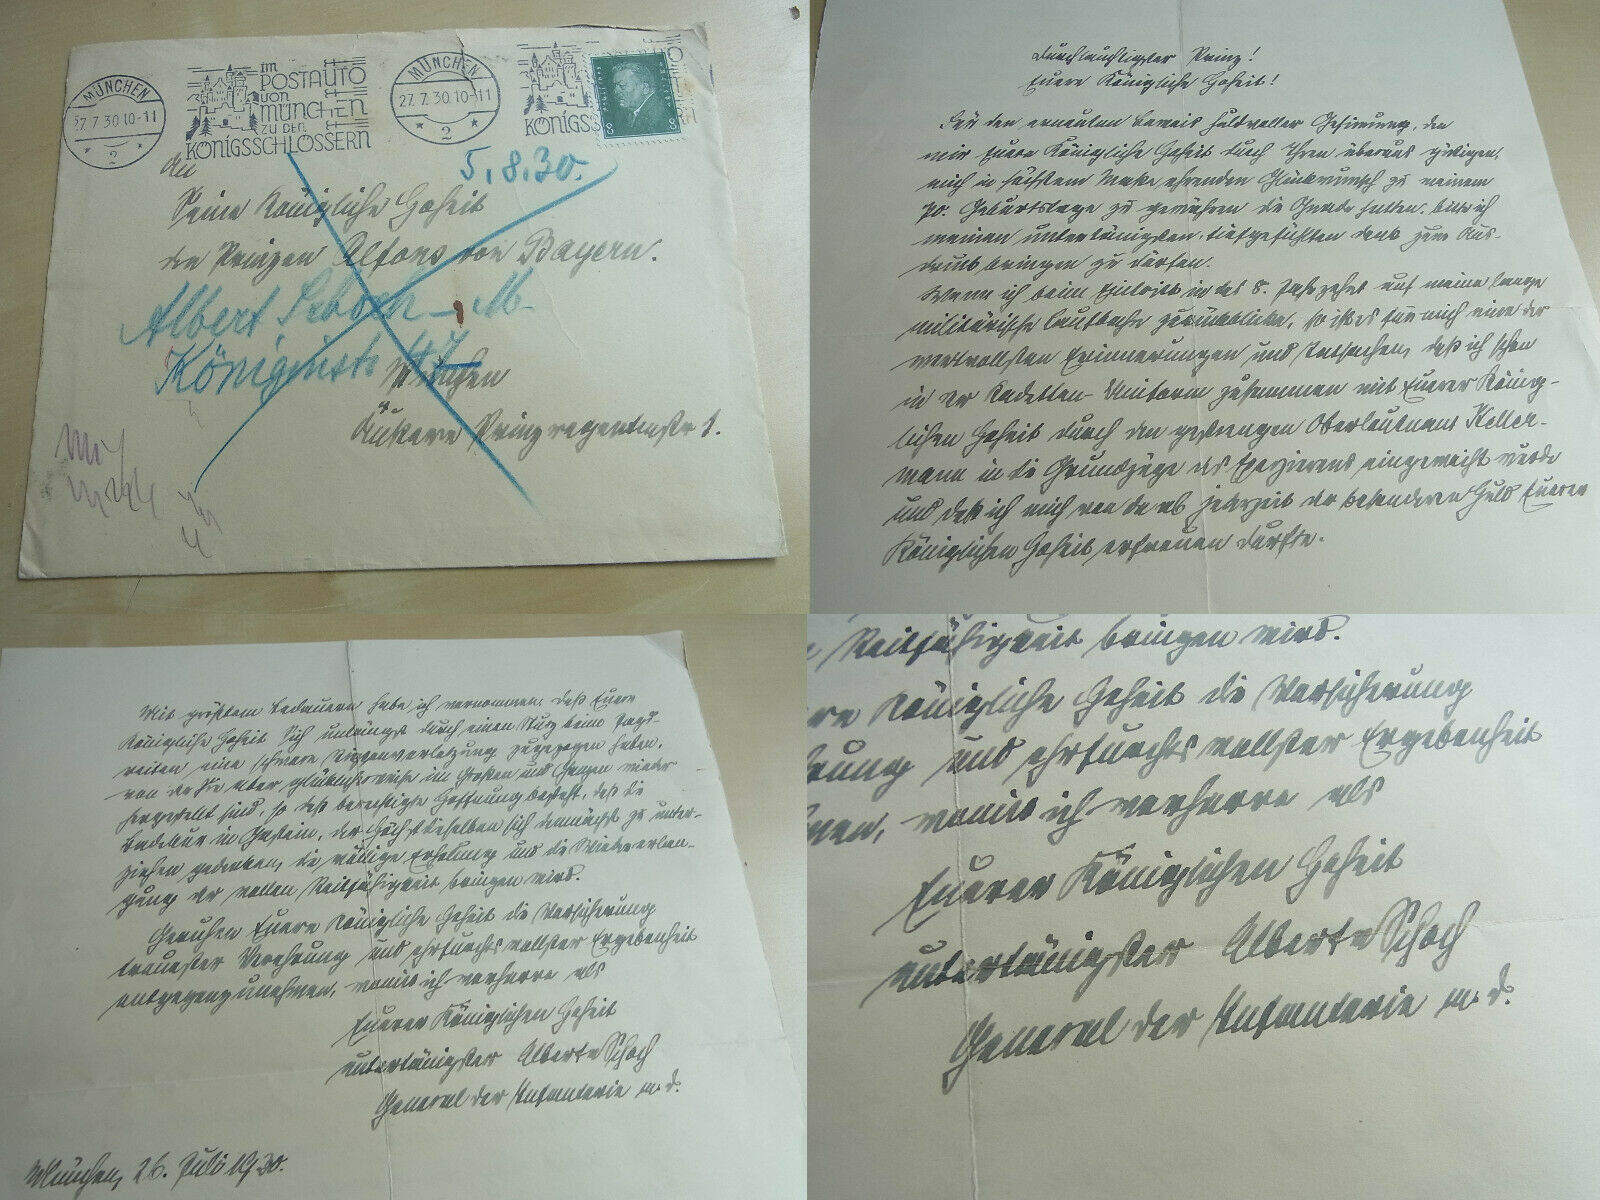 MÜNCHEN
27.7.30.10-11
2
im
POSTAUTO
von
MÜNCHEN
ZU DEN
KÖNIGSSCHLÖSSERN
MÜNCHEN
27.7.30.10-11
2
KÖNIGSS
8
5.8.30.
An
Seine Königliche Hoheit
den Prinzen Alfons von Bayern.
Albert Schoch - M-
Königinstr.
München
Äußere Prinzregentenstr 1.
Durchlauchtigster Prinz!
Euere Königliche Hoheit!
Für den erneuten Beweis huldvoller Gesinnung, den
mir Euere Königliche Hoheit durch Ihren überaus gütigen,
mich in höchstem Maße ehrenden Glückwunsch zu meinem
70. Geburtstage zu gewähren die Gnade hatten, bitte ich
meinen untertänigsten, tiefgefühlten Dank zum Aus-
druck bringen zu dürfen.
Wenn ich beim Eintritt in das 8. Jahrzehnt auf meine lange
militärische Laufbahn zurückblicke, so ist es für mich eine der
wertvollsten Erinnerungen und Tatsachen, daß ich schon
in der Kadetten-Uniform zusammen mit Euerer König-
lichen Hoheit durch den gestrengen Oberleutnant Keller-
mann in die Grundzüge des Exerzierens eingeweiht wurde
und daß ich mich von da ab jederzeit der besonderen Huld Euerer
Königlichen Hoheit erfreuen durfte.
Mit größtem Bedauern habe ich vernommen, daß Euere
Königliche Hoheit Sich unlängst durch einen Sturz beim
reiten eine schwere Rippenverletzung zugezogen haben,
von der Sie aber glücklicherweise im Großen und Ganzen wieder
hergestellt sind, so daß berechtigte Hoffnung besteht, daß die
Badekur in Gastein, der Höchstdieselben sich demnächst zu unter-
ziehen gedenken, die völlige Erholung und die Wiedererlan-
gung der vollen Reitfähigkeit bringen wird.
Geruhen Euere Königliche Hoheit die Versicherung
treuester Verehrung und ehrfurchtsvollster Ergebenheit
entgegenzunehmen, womit ich verharre als
Euerer Königlichen Hoheit
untertänigster Albert Schoch
General der Infanterie a. D.
München, 26. Juli 1930.
Reitfähigkeit bringen wird.
re Königliche Hoheit die Versicherung
hrung und ehrfurchtsvollster Ergebenheit
men, womit ich verharre als
Euerer Königlichen Hoheit
untertänigster Albert Schoch
General der Infanterie a. D.